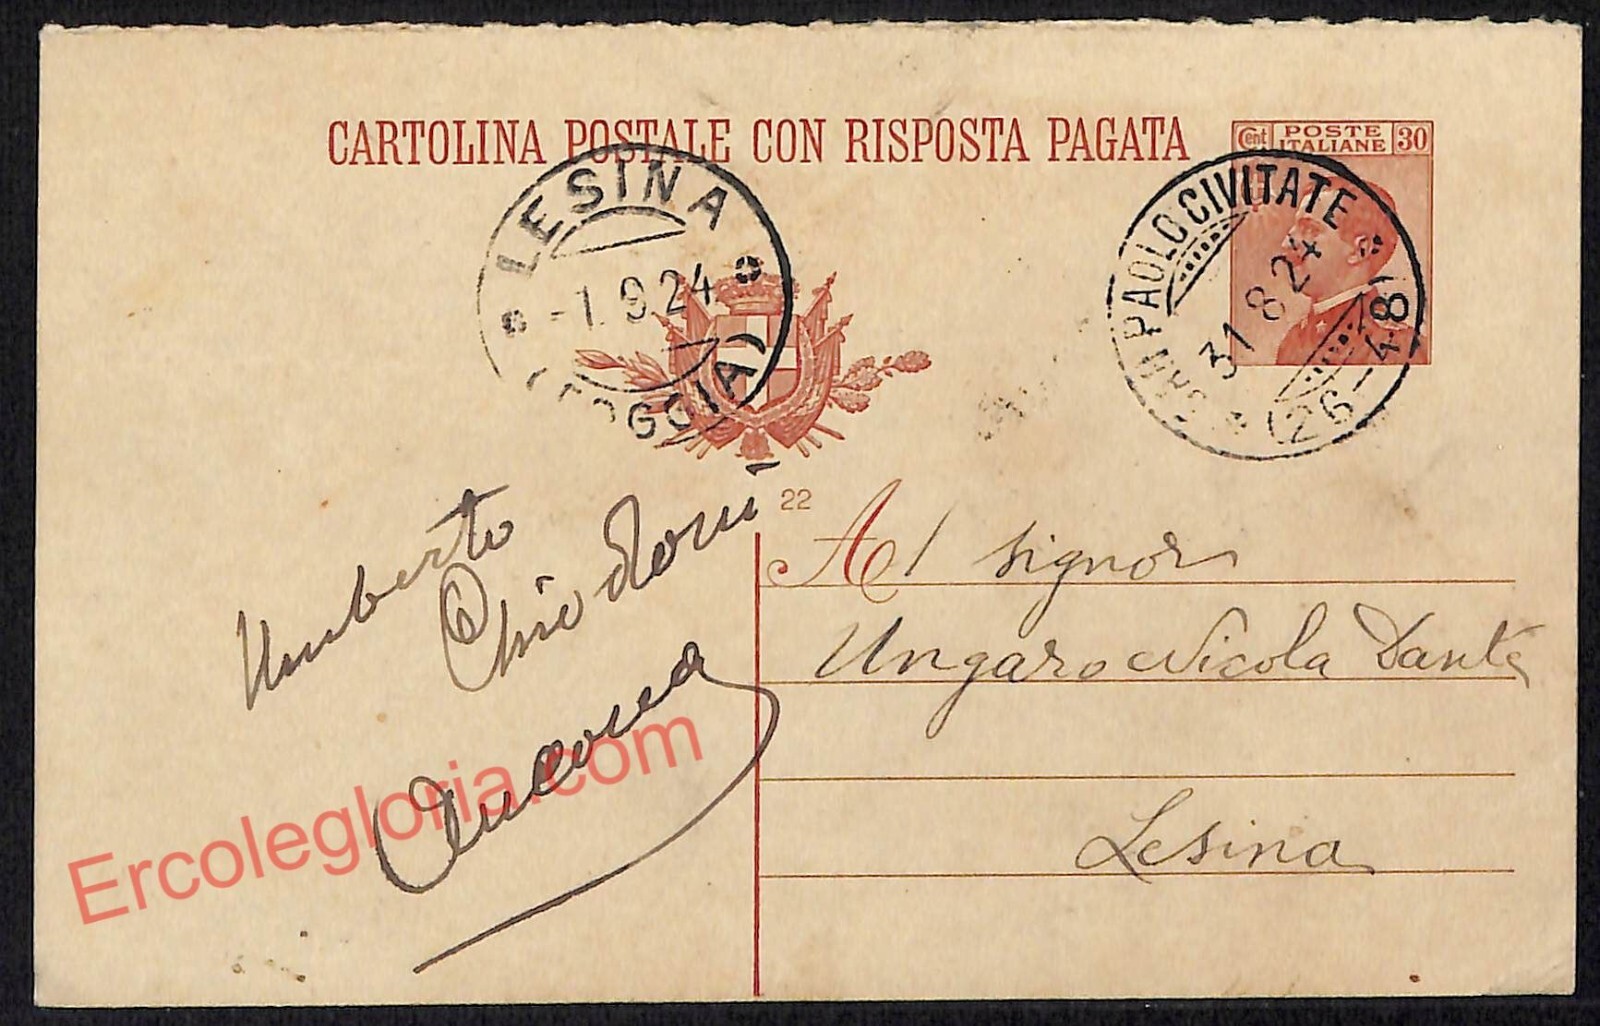 CARTOLINA POSTALE CON RISPOSTA PAGATA
Cent POSTE ITALIANE 30
LESINA
-1.9.24
(FOGGIA)
SAN PAOLO CIVITATE
31 8 24
(26-48)
22
Al signor
Ungaro Nicola Dante
Lesina
Umberto
Chiodoni
Ancona
Ercolegloria.com